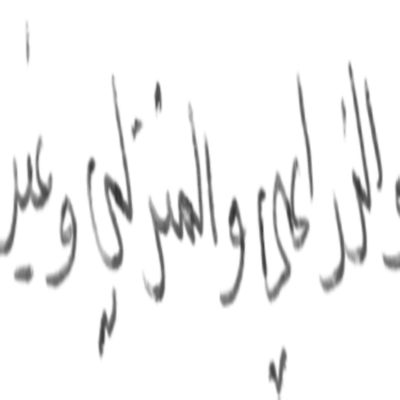 والزراعي والمنزلي وغير